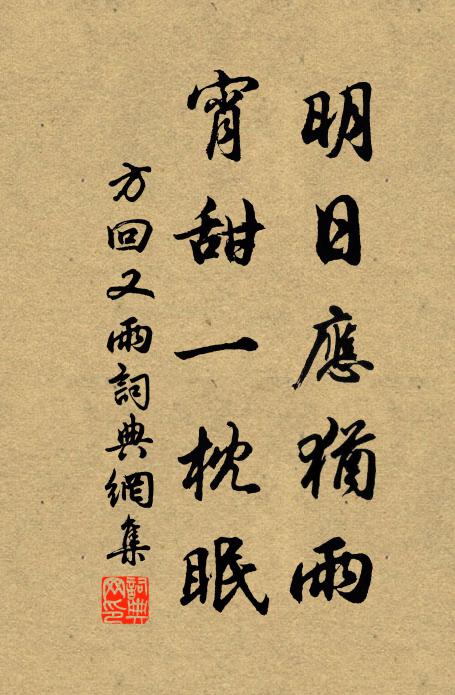 明日應猶雨
宵甜一枕眠
方回又雨詞典網集
詞典网印